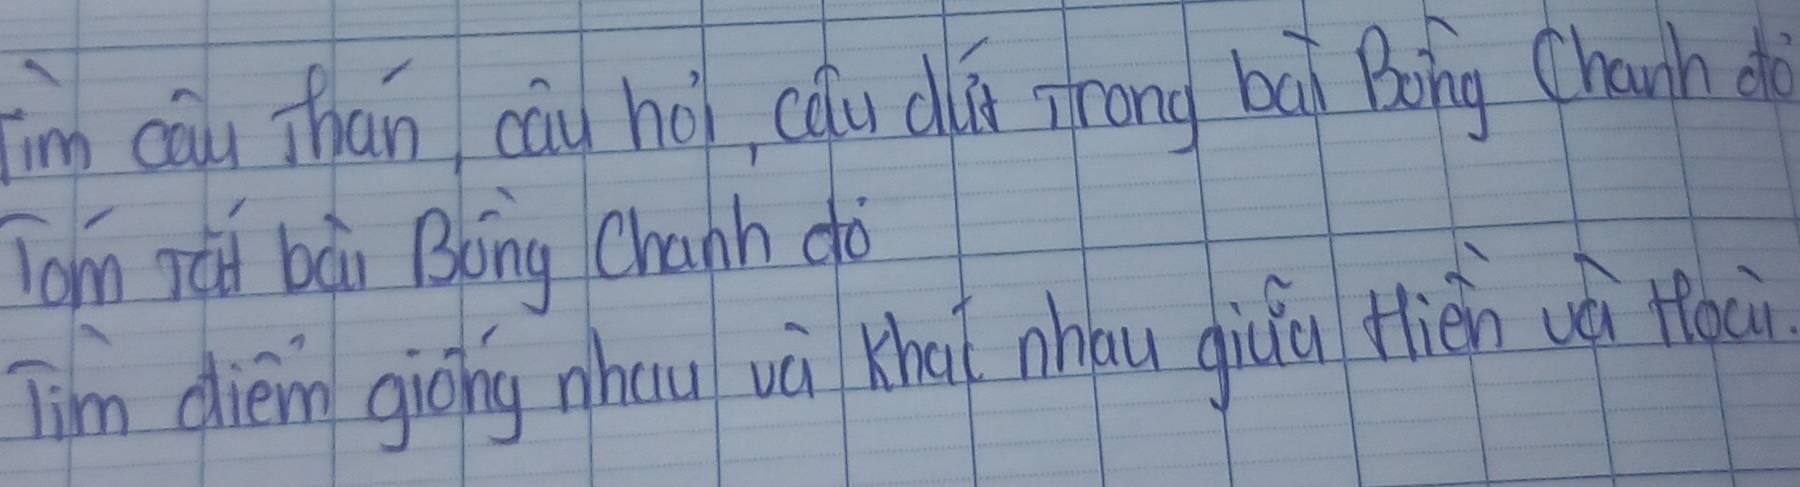 Tìm câu Thán, câu hỏi, câu dứt Trong bài Bồng Chanh đỏ
Tóm Tắt bài Bồng Chanh đỏ
Tìm điểm giống nhau và Khát nhau giữa Hiền và Hoài.